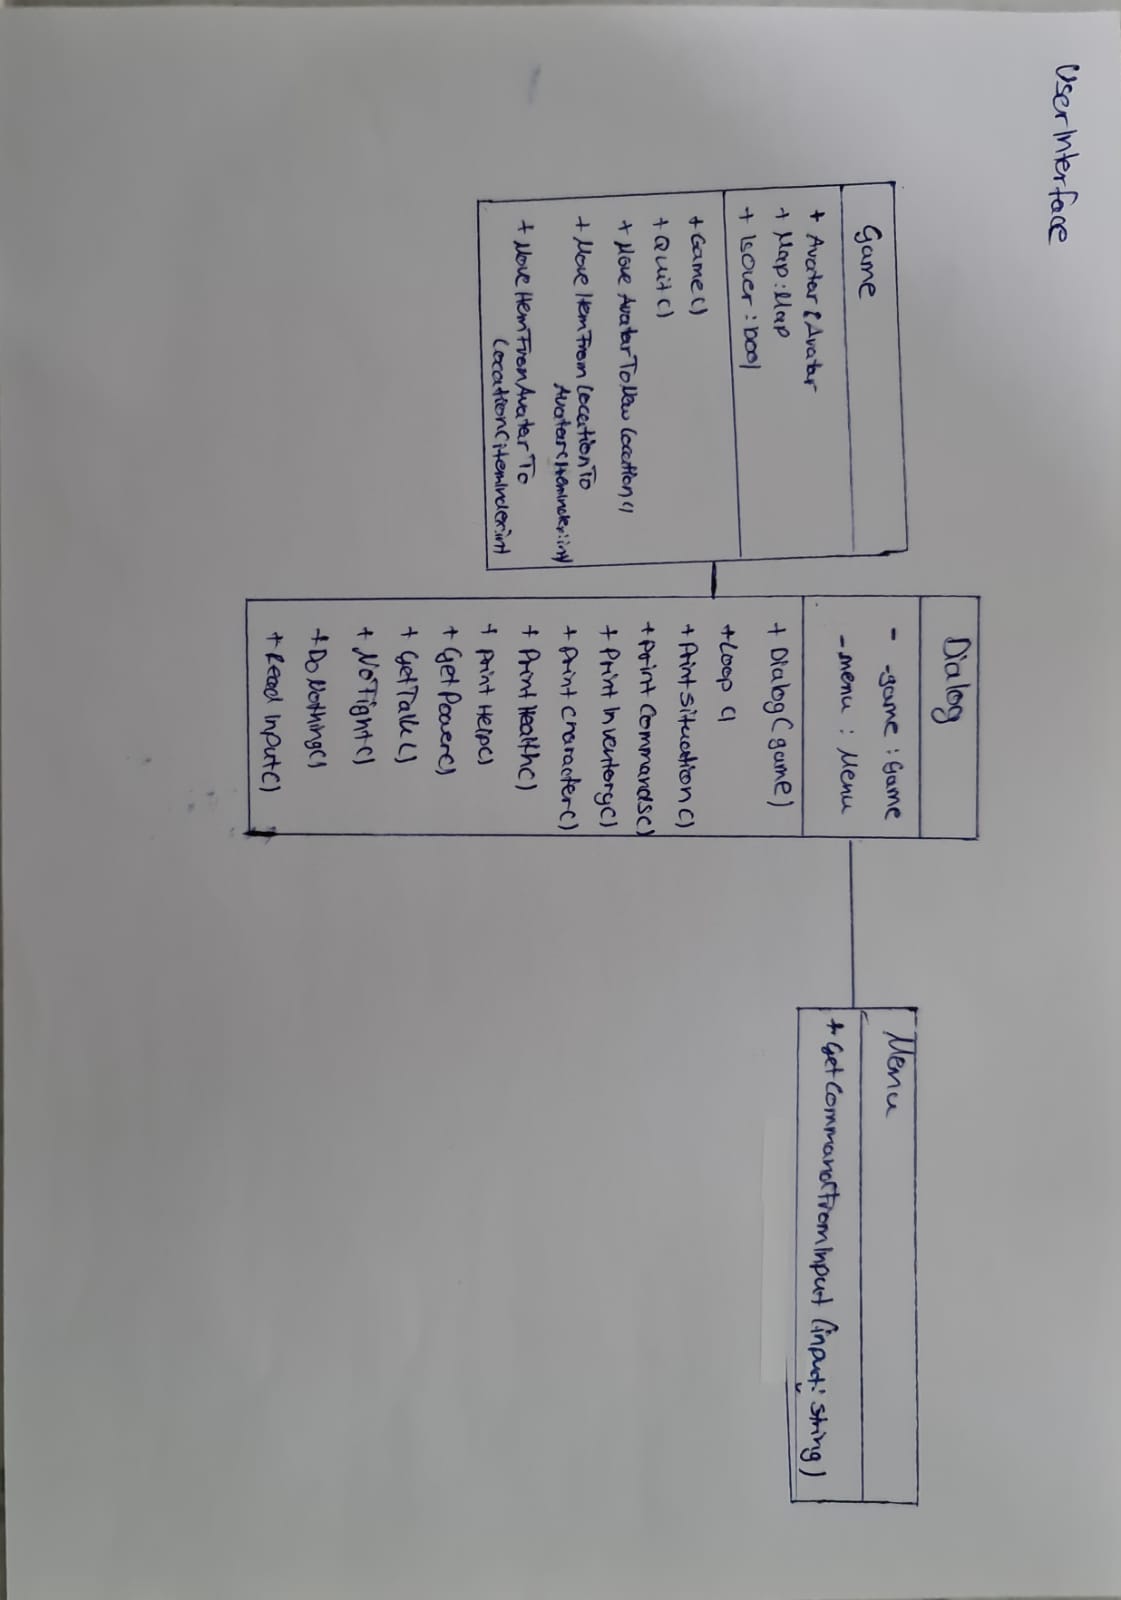 UserInterface
Game
+ Avatar : Avatar
+ Map : Map
+ IsOver : bool
+ Game()
+ Quit()
+ Move AvatarToNew Location()
+ Move ItemFrom LocationTo
Avatar(itemIndex:int)
+ Move ItemFromAvatar To
Location(itemIndex:int
Dialog
- -game : Game
- menu : Menu
+ Dialog(game)
+ Loop()
+ Print situation()
+ Print Commands()
+ Print Inventory()
+ Print Character()
+ Print Health()
+ Print Help()
+ Get Power()
+ Get Talk()
+ No Fight()
+ Do Nothing()
+ Read Input()
Menu
+ GetCommandFromInput (input: string)